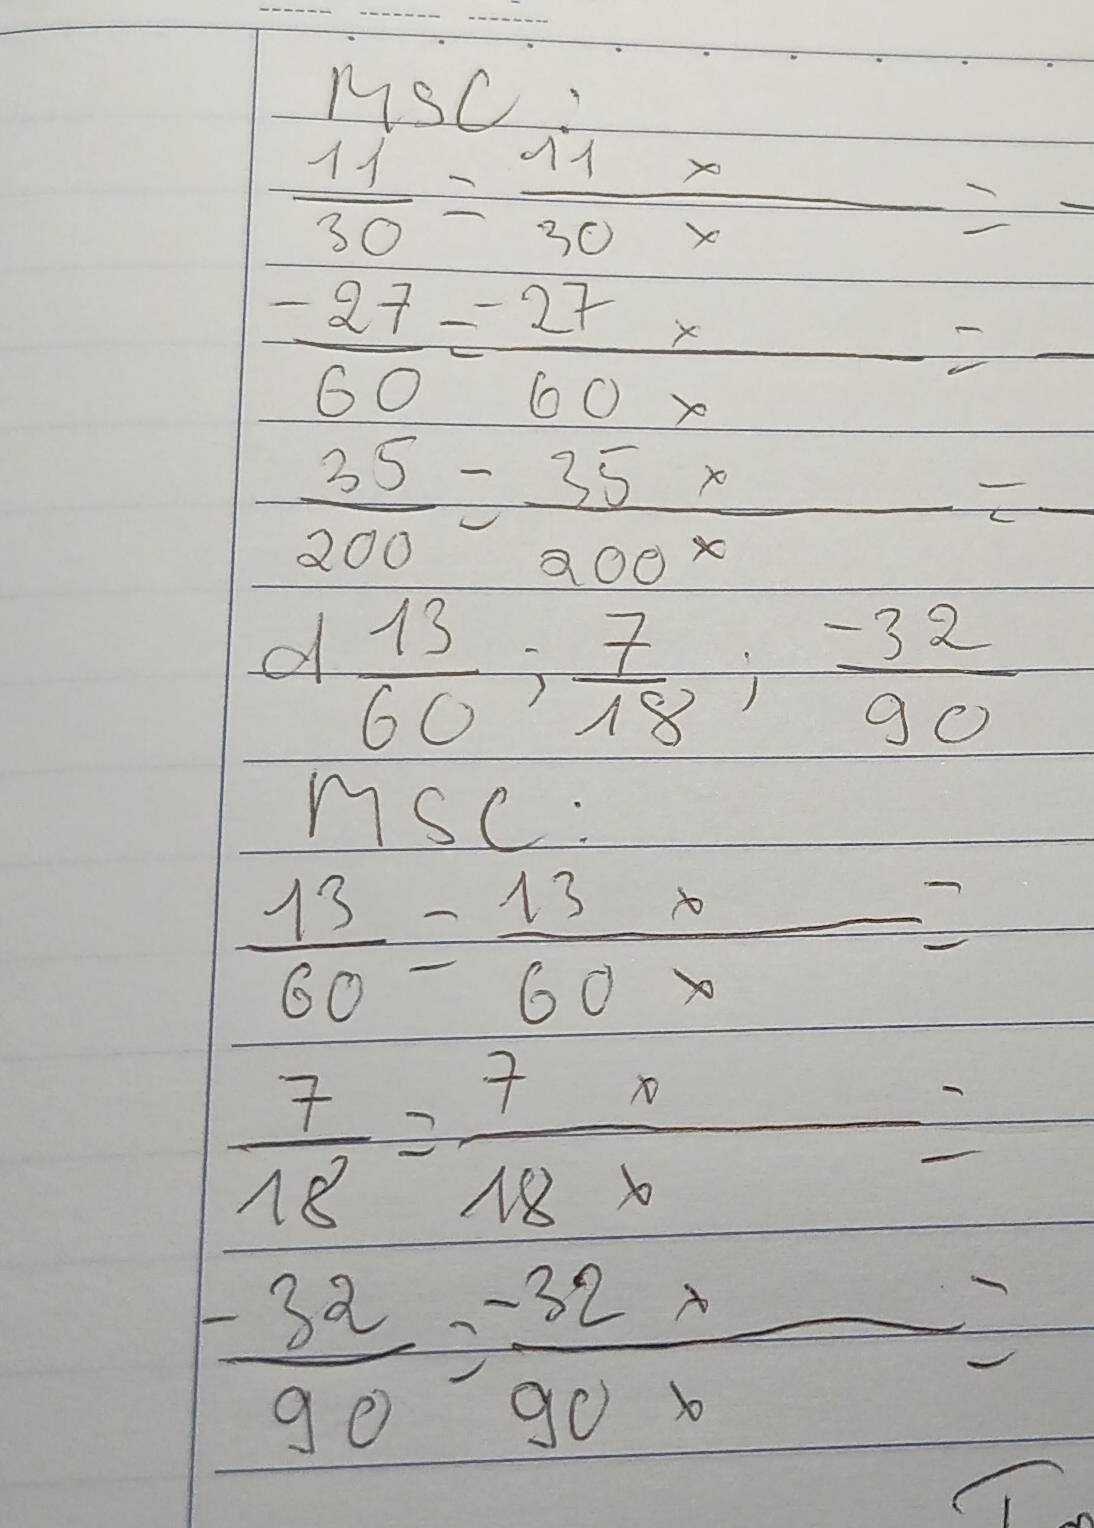 MSC:
11/30 = 11 × / 30 × =
-27/60 = -27 × / 60 × =
35/200 = 35 × / 200 × =
d 13/60 ; 7/18 ; -32/90
MSC:
13/60 = 13 × / 60 × =
7/18 = 7 × / 18 × =
-32/90 = -32 × / 90 × =